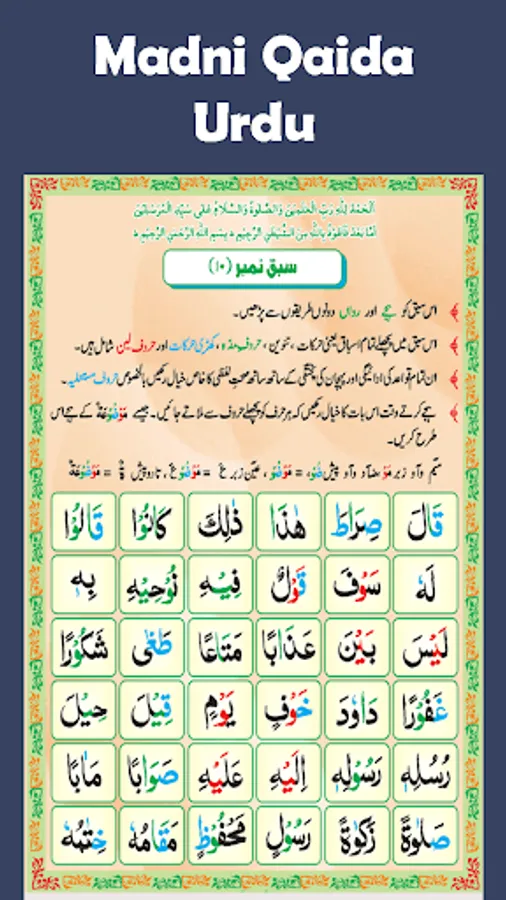 Madni Qaida
Urdu
اَلْحَمْدُ لِلّٰهِ رَبِّ الْعٰلَمِيْنَ وَالصَّلٰوةُ وَالسَّلَامُ عَلٰى سَيِّدِ الْمُرْسَلِيْنَ
اَمَّا بَعْدُ فَاَعُوْذُ بِاللّٰهِ مِنَ الشَّيْطٰنِ الرَّجِيْمِ ؕ بِسْمِ اللّٰهِ الرَّحْمٰنِ الرَّحِيْمِ ؕ
سبق نمبر (۱۰)
اس سبق کو ہجے اور رواں دونوں طریقوں سے پڑھیں۔
اس سبق میں پچھلے تمام اسباق یعنی حرکات ، تنوین ، حروفِ مدہ ، کھڑی حرکات اور حروفِ لین شامل ہیں۔
ان تمام قواعد کی ادائیگی اور پہچان کی پختگی کے ساتھ ساتھ صحتِ لفظی کا خاص خیال رکھیں بالخصوص حروفِ مستعلیہ۔
ہجے کرتے وقت اس بات کا خیال رکھیں کہ ہر حرف کو پچھلے حروف سے ملاتے جائیں۔ جیسے مَوْضُوْعَةٌ کے ہجے اس
طرح کریں۔
میم واؤ زبر مَوْ ضاد واؤ پیش ضُوْ، = مَوْضُوْ ، عین زبر عَ = مَوْضُوْعَ ، تا دو پیش ةٌ = مَوْضُوْعَةٌ
قَالَ صِرَاطَ هٰذَا ذٰلِكَ كَانُوْا قَالُوْا
لَهٗ سَوْفَ قَوْلٌ فِيْهِ نُوْحِيْهِ بِهٖ
لَيْسَ بَيْنَ عَذَابًا مَتَاعًا طَغٰى شَكُوْرًا
غَفُوْرًا دَاوٗدَ خَوْفٍ يَوْمٍ قِيْلَ حِيْلَ
رُسُلِهٖ رَسُوْلِهٖ اِلَيْهِ عَلَيْهِ صَوَابًا مَاٰبًا
صَلٰوةً زَكٰوةً رَسُوْلٍ مَحْفُوْظٍ مَقَامُهٗ خِتٰمُهٗ